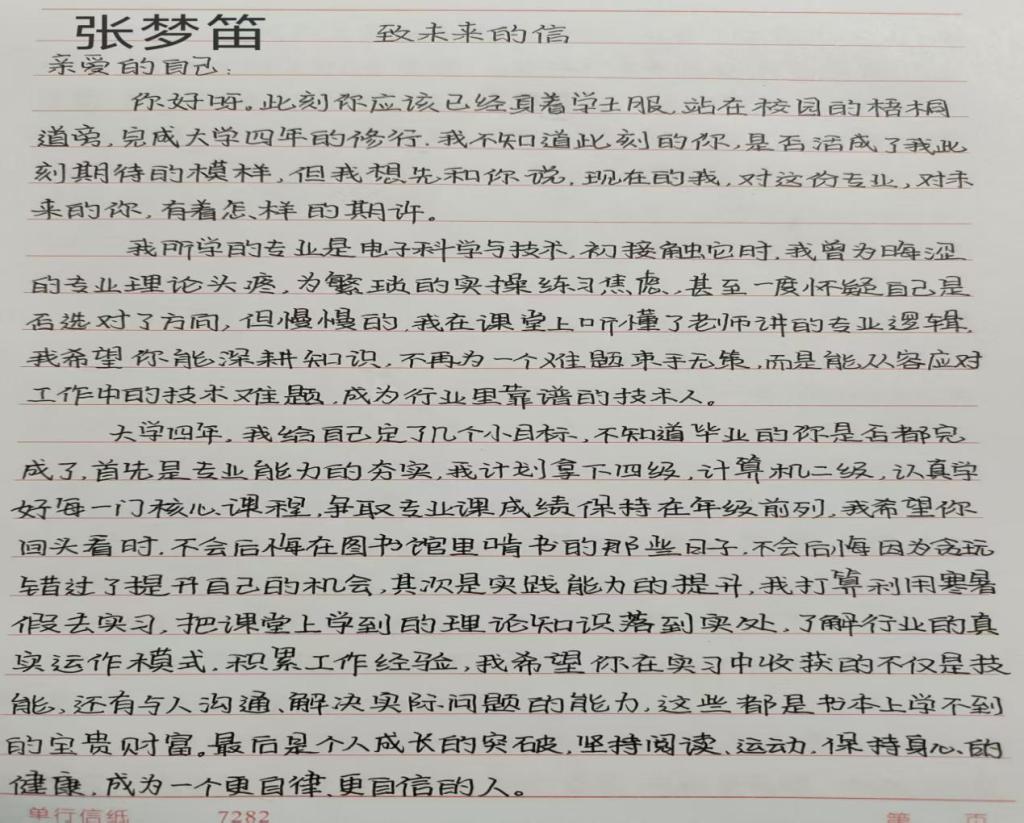 张梦笛 致未来的信
亲爱的自己:
你好呀。此刻你应该已经身着学士服,站在校园的梧桐
道旁,完成大学四年的修行。我不知道此刻的你,是否活成了我此
刻期待的模样,但我想先和你说,现在的我,对这份专业,对未
来的你,有着怎样的期许。
我所学的专业是电子科学与技术,初接触它时,我曾为晦涩
的专业理论头疼,为繁琐的实操练习焦虑,甚至一度怀疑自己是
否选对了方向,但慢慢的,我在课堂上听懂了老师讲的专业逻辑,
我希望你能深耕知识,不再为一个难题束手无策,而是能从容应对
工作中的技术难题,成为行业里靠谱的技术人。
大学四年,我给自己定了几个小目标,不知道毕业的你是否都完
成了,首先是专业能力的夯实,我计划拿下四级,计算机二级,认真学
好每一门核心课程,争取专业课成绩保持在年级前列,我希望你
回头看时,不会后悔在图书馆里啃书的那些日子,不会后悔因为贪玩
错过了提升自己的机会,其次是实践能力的提升,我打算利用寒暑
假去实习,把课堂上学到的理论知识落到实处,了解行业的真
实运作模式,积累工作经验,我希望你在实习中收获的不仅是技
能,还有与人沟通、解决实际问题的能力,这些都是书本上学不到
的宝贵财富。最后是个人成长的突破,坚持阅读、运动,保持身心的
健康,成为一个更自律、更自信的人。
单行信纸 7282 第 页